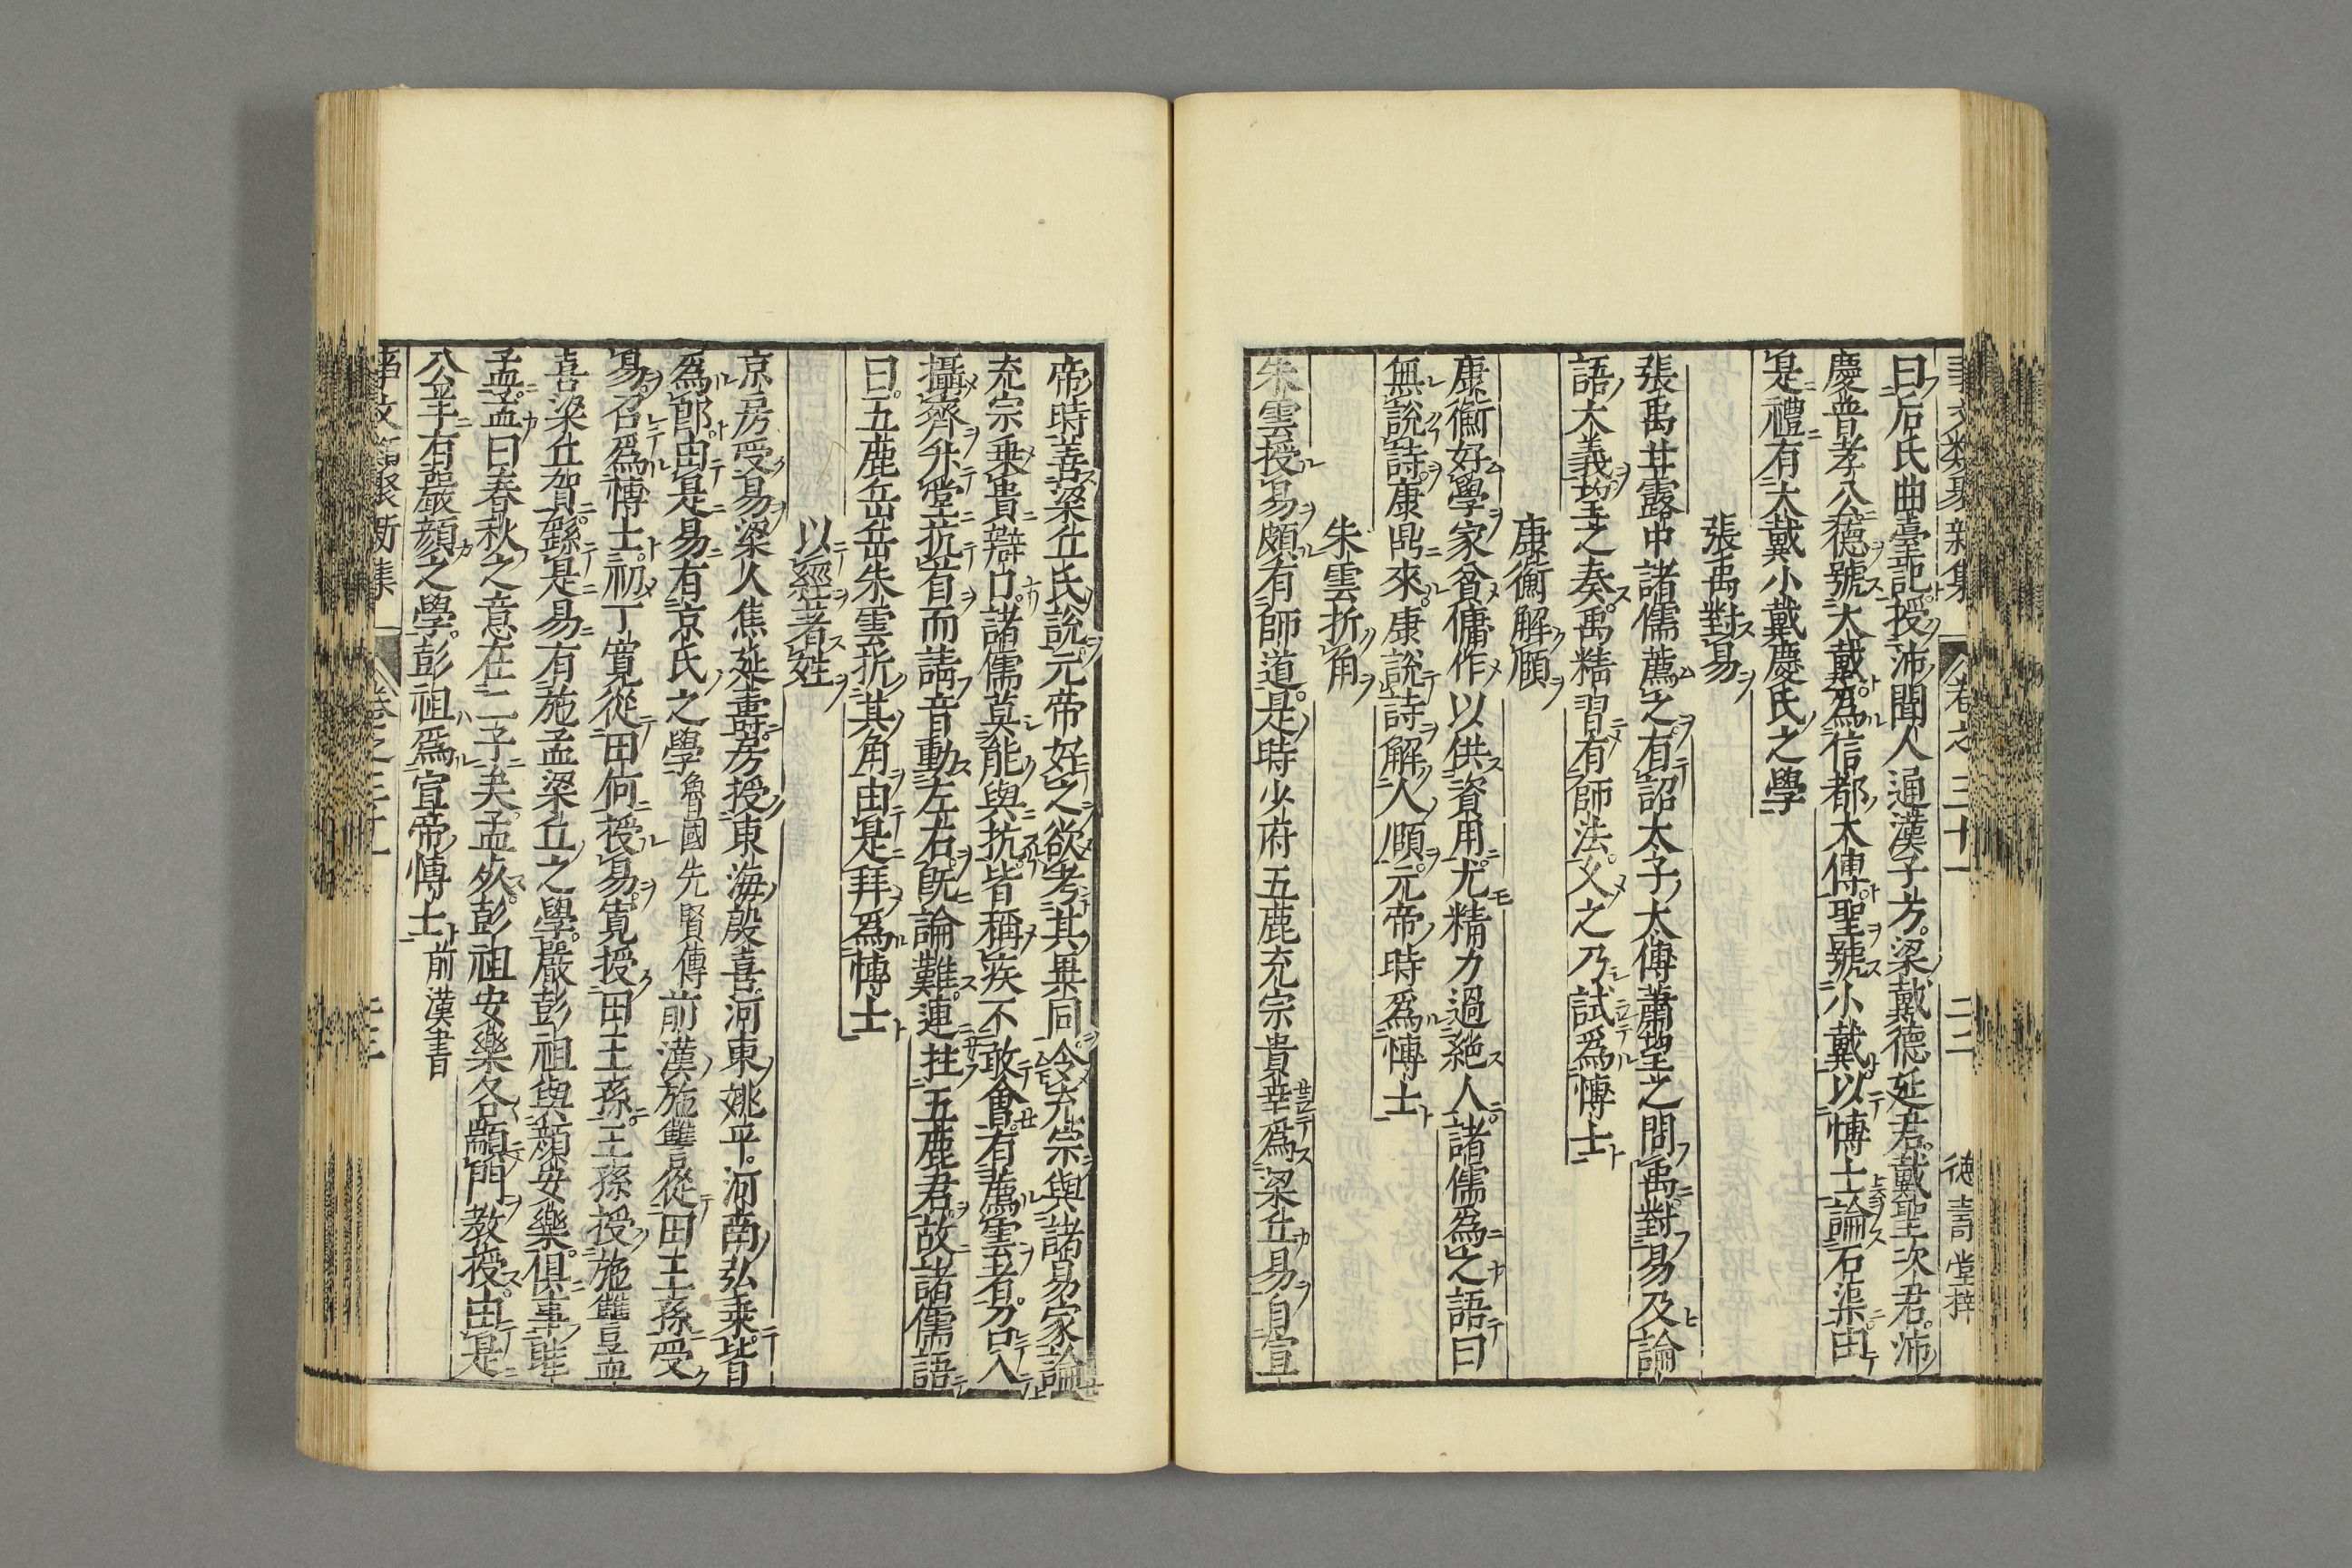 事文類聚新集 卷之三十一 二二 徳壽堂梓
曰后氏曲臺記授沛聞人通漢子方梁戴德延君戴聖次君沛
慶普孝公德號大戴爲信都太傅聖號小戴以博士論石渠由
是禮有大戴小戴慶氏之學
張禹對易
張禹甘露中諸儒薦之有詔太子太傅蕭望之問禹對易及論
語大義望之奏禹精習有師法又之乃試爲博士
康衡解頤
康衡好學家貧傭作以供資用尤精力過絶人諸儒爲之語曰
無說詩康鼎來康說詩解人頤元帝時爲博士
朱雲折角
朱雲授易頗有師道是時少府五鹿充宗貴幸爲梁丘易自宣
帝時善梁丘氏說元帝好之欲考其異同令充宗與諸易家論
充宗乗貴辯口諸儒莫能與抗皆稱疾不敢會有薦雲者召入
攝齊升堂抗首而請音動左右既論難連拄五鹿君故諸儒語
曰五鹿岳岳朱雲折其角由是拜爲博士
以經著姓
京房受易梁人焦延壽房授東海殷喜河東姚平河南弘乗皆
爲郎由是易有京氏之學魯國先賢傳前漢施讐從田王孫受
易召爲博士初丁寬從田何授易寛授田王孫王孫授施讐孟
喜梁丘賀繇是易有施孟梁丘之學嚴彭祖與顔安樂俱事眭
孟孟曰春秋之意在二子矣孟死彭祖安樂各顓門教授由是
公羊有嚴顔之學彭祖爲宣帝博士前漢書
事文類聚新集 卷之三十一